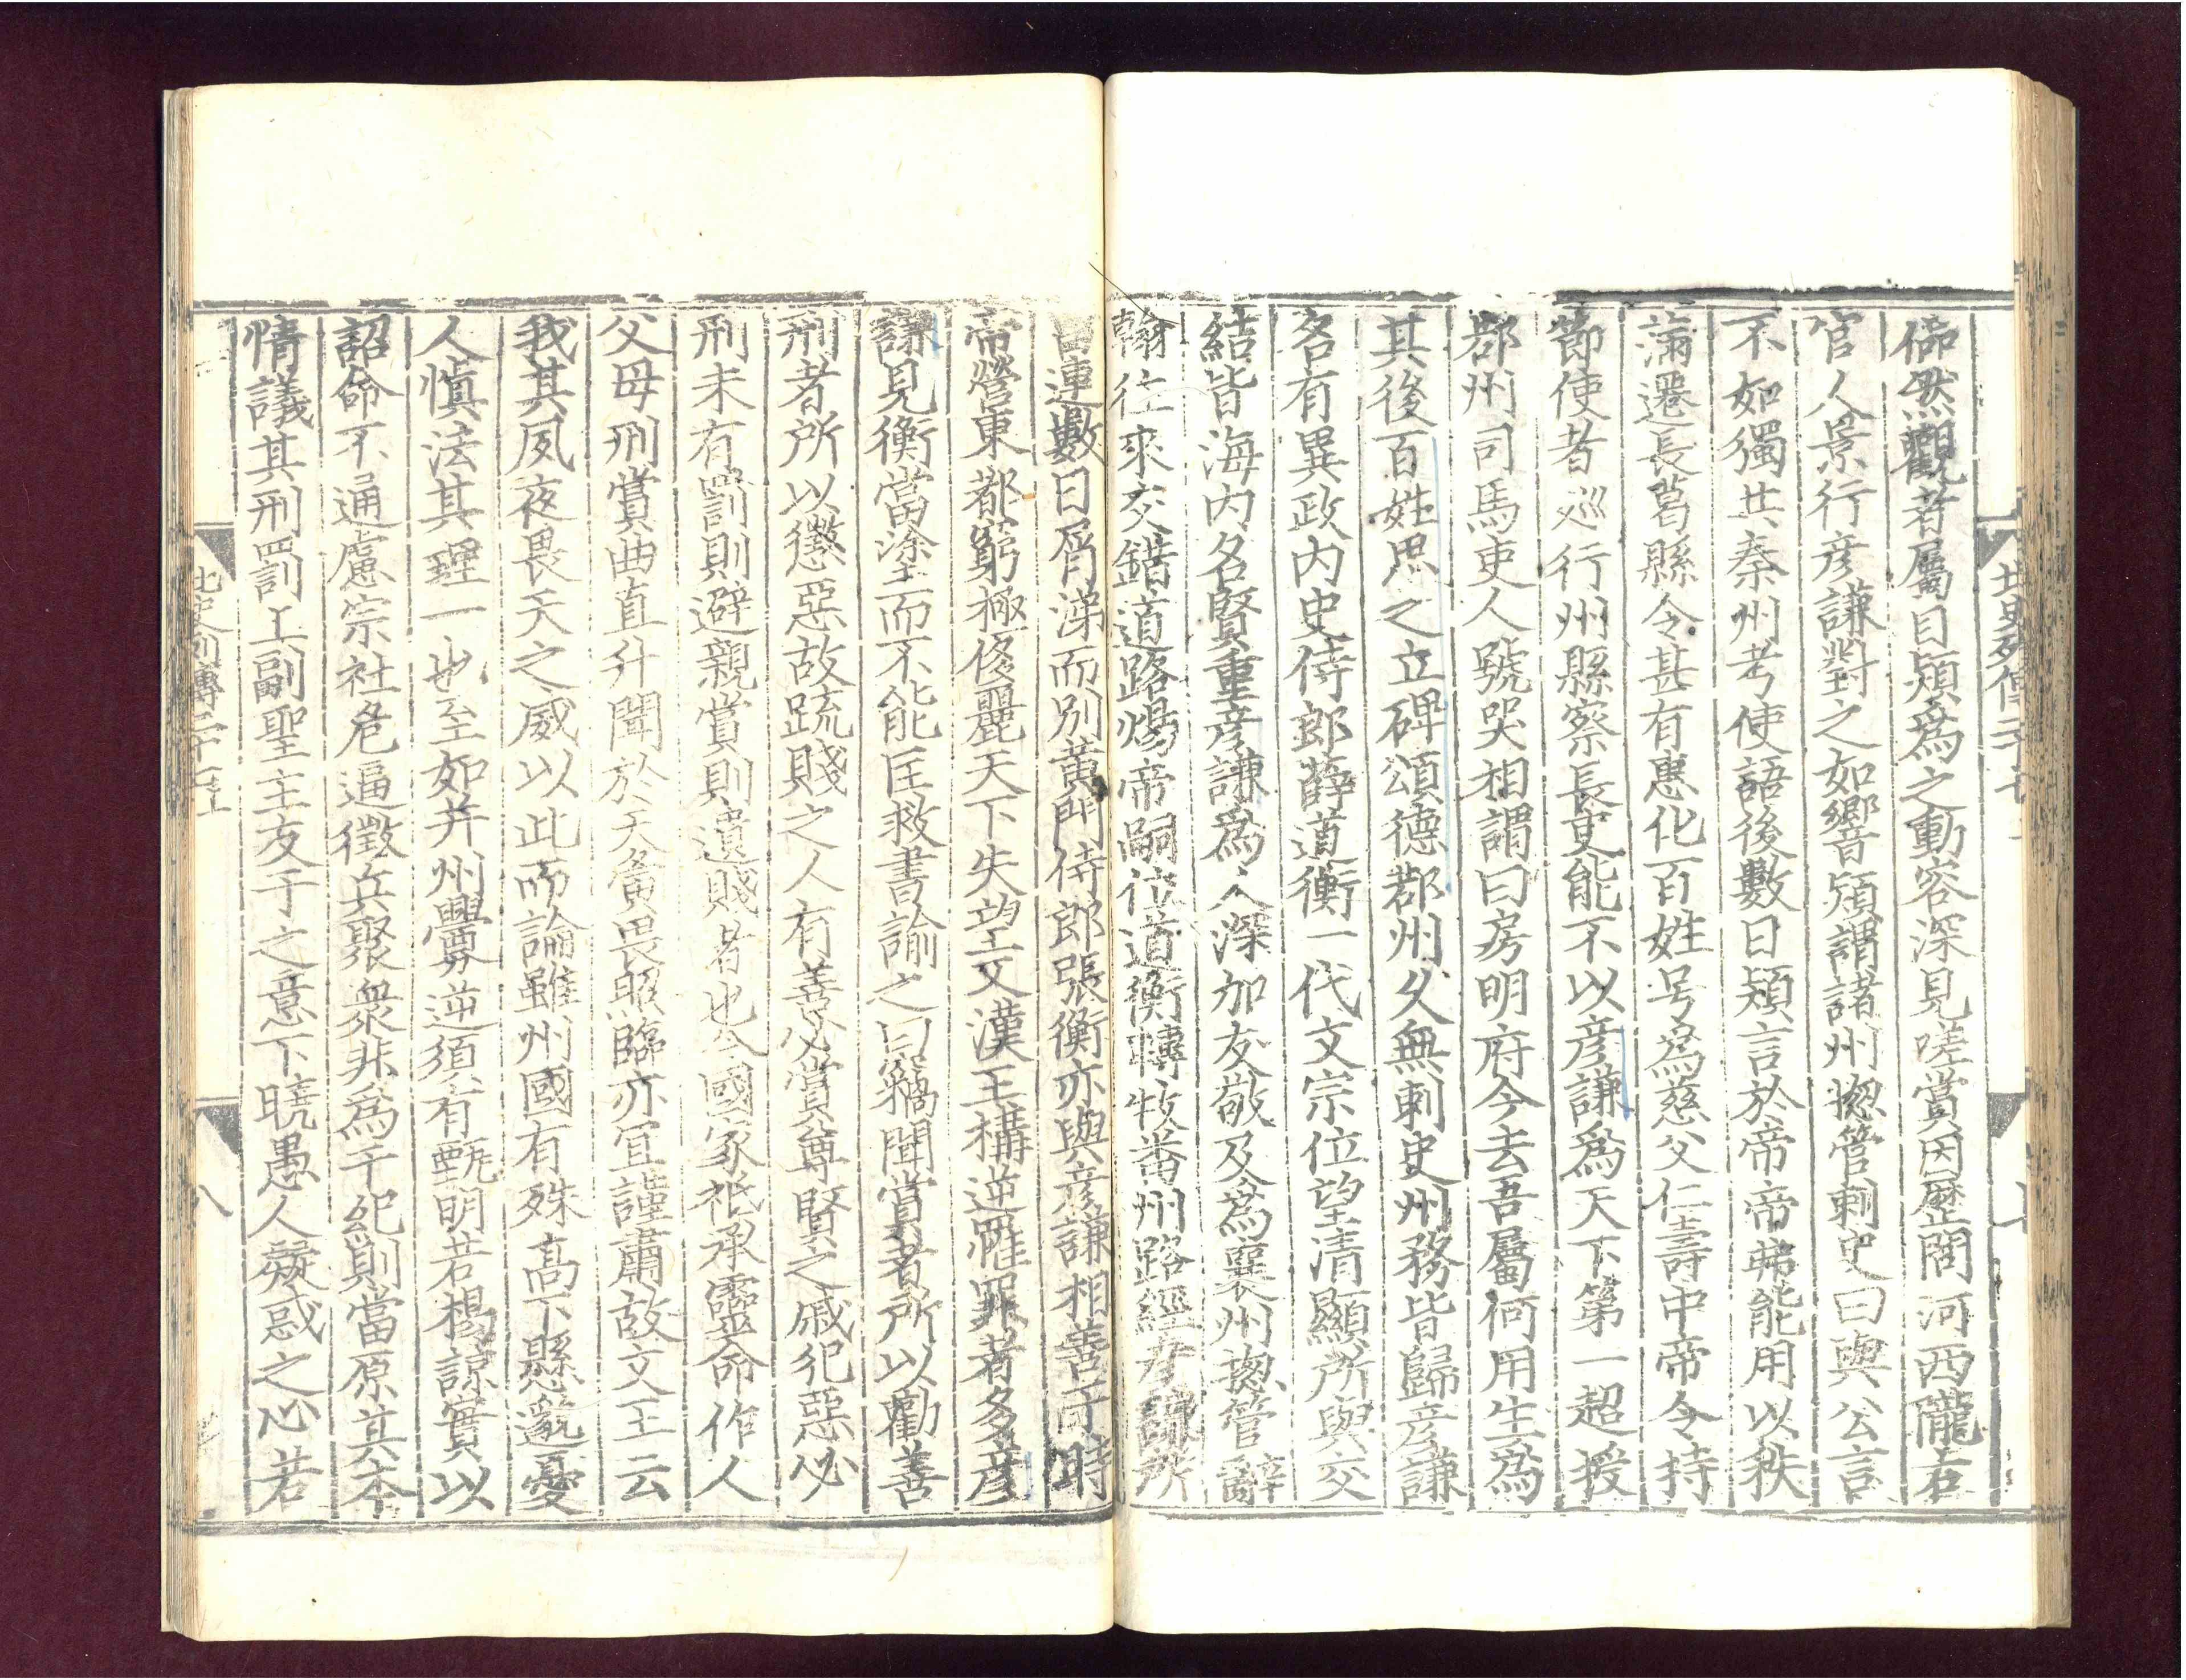 北史列傳二十七
偹然觀者屬目熲爲之動容深見嗟賞因歷問河西隴右
官人景行彦謙對之如響熲謂諸州揔管刺史曰與公言
不如獨共秦州考使語後數日熲言於帝帝弗能用以秩
滿遷長葛縣令甚有惠化百姓号爲慈父仁壽中帝令持
節使者巡行州縣察長吏能不以彦謙爲天下第一超授
鄀州司馬吏人號哭相謂曰房明府今去吾屬何用生爲
其後百姓思之立碑頌德鄀州久無刺史州務皆歸彦謙
名有異政内史侍郎薛道衡一代文宗位望清顯所與交
結皆海内名賢重彦謙爲人深加友敬及爲襄州揔管辭
翰往來交錯道路煬帝嗣位道衡轉牧番州路經彦謙所
留連數日屑涕而別黄門侍郎張衡亦與彦謙相善于時
帝營東都窮極侈麗天下失望又漢王構逆罹罪者多彦
謙見衡當塗而不能匡救書諭之曰竊聞賞者所以勸善
刑者所以懲惡故疏賤之人有善必賞尊賢之戚犯惡必
刑未有罰則避親賞則遺賤者也今國家祗承靈命作人
父母刑賞曲直升聞於天夤畏照臨亦冝謹肅故文王云
我其夙夜畏天之威以此而論雖州國有殊高下懸邈憂
人慎法其理一也至如并州釁逆須有甄明若楊諒實以
詔命不通慮宗社危逼徵兵聚衆非爲干紀則當原其本
情議其刑罰上副聖主友于之意下曉愚人疑惑之心若
北史列傳二十七
八